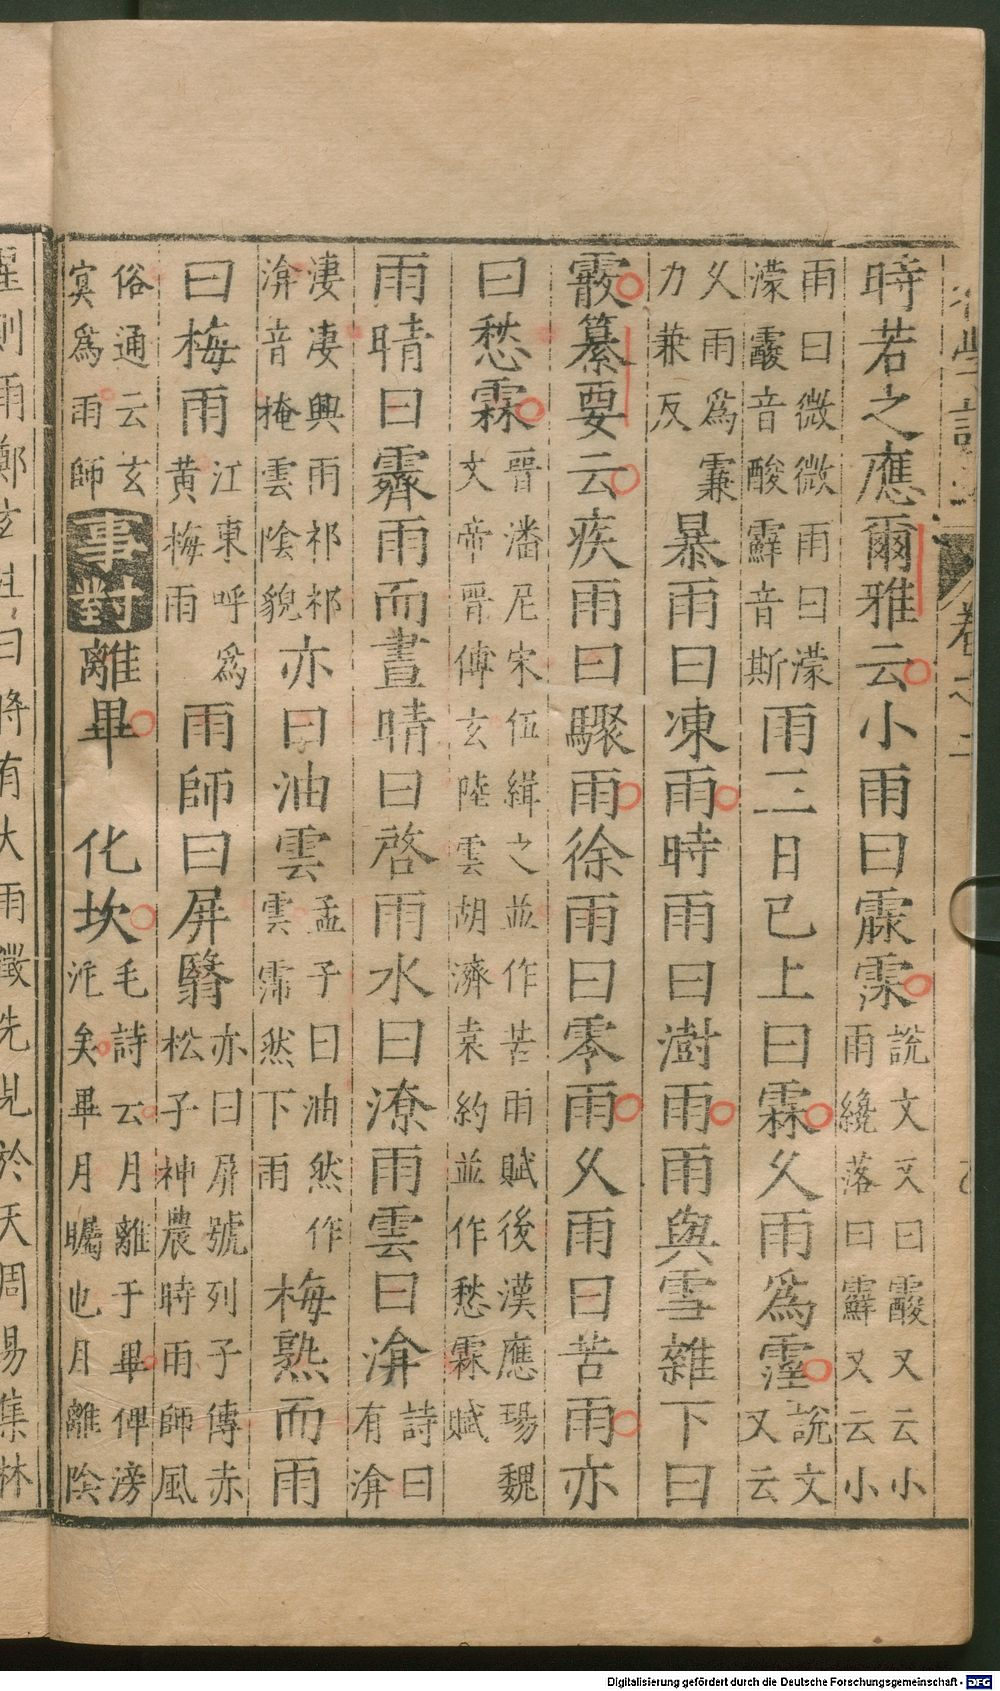 初學記 卷之二
時若之應爾雅云小雨曰霡霂
說文又曰䨘又云小
雨纔落曰𩆵又云小
雨曰微微雨曰濛
濛䨘音酸𩆵音斯
雨三日已上曰霖久雨爲霪
說文
又云
久雨爲䨬
力兼反
暴雨曰凍雨時雨曰澍雨雨與雪雜下曰
霰纂要云疾雨曰驟雨徐雨曰零雨久雨曰苦雨亦
曰愁霖
晉潘尼宋伍緝之並作苦雨賦後漢應瑒魏
文帝晉傅玄陸雲胡濟袁約並作愁霖賦
雨晴曰霽雨而晝晴曰啓雨水曰潦雨雲曰渰
詩曰
有渰
淒淒興雨祁祁
渰音掩雲陰貌
亦曰油雲
孟子曰油然作
雲霈然下雨
梅熟而雨
曰梅雨
江東呼爲
黃梅雨
雨師曰屏翳
亦曰屏號列子傳赤
松子神農時雨師風
俗通云玄
寞爲雨師
事對
離畢 化坎
毛詩云月離于畢俾滂
沱矣畢月矚也月離陰
則雨鄭玄注曰將有大雨徵先見於天周易集林
Digitalisierung gefördert durch die Deutsche Forschungsgemeinschaft - DFG